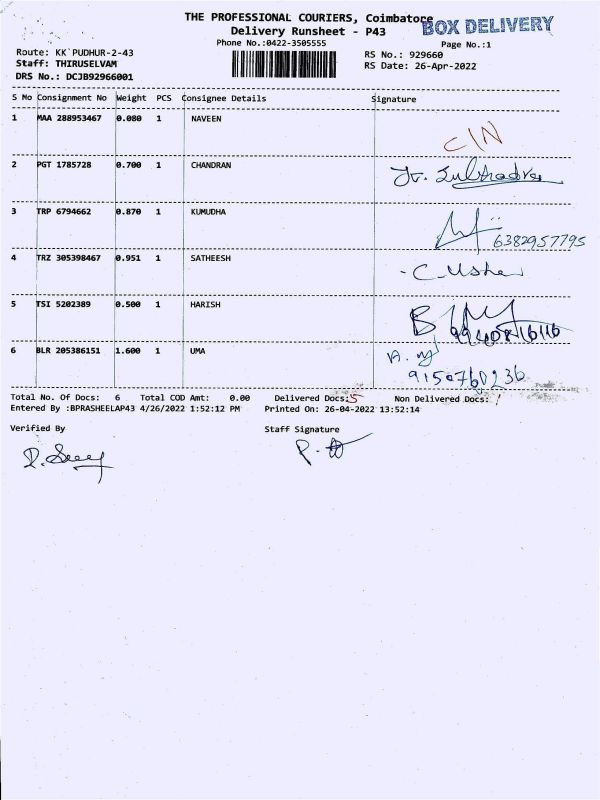 THE PROFESSIONAL COURIERS, Coimbatore
BOX DELIVERY
Delivery Runsheet - P43
Phone No.:0422-3505555
Page No.:1
Route: KK PUDHUR-2-43
RS No.: 929660
Staff: THIRUSELVAM
RS Date: 26-Apr-2022
DRS No.: DCJB92966001
S No Consignment No Weight PCS Consignee Details Signature
1 MAA 288953467 0.080 1 NAVEEN
C/N
2 PGT 1785728 0.700 1 CHANDRAN
3 TRP 6794662 0.870 1 KUMUDHA
6382957795
4 TRZ 305398467 0.951 1 SATHEESH
C. Usha
5 TSI 5202389 0.500 1 HARISH
6 BLR 205386151 1.600 1 UMA
9150760236
Total No. Of Docs: 6 Total COD Amt: 0.00 Delivered Docs:5 Non Delivered Docs: 1
Entered By :BPRASHEELAP43 4/26/2022 1:52:12 PM Printed On: 26-04-2022 13:52:14
Verified By Staff Signature